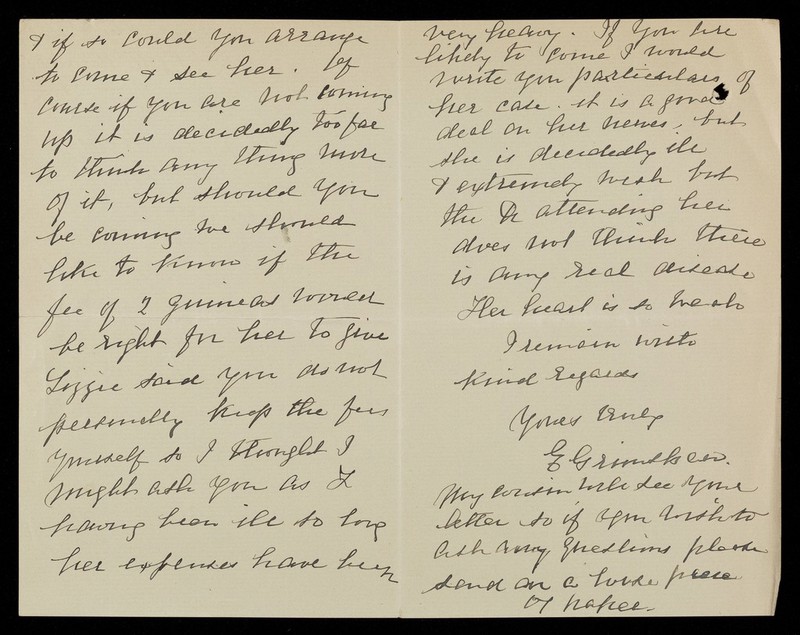 & if so could you arrange
to come & see her. Of
course if you are not coming
up it is decidedly too far
to think any thing more
of it, but should you
be coming we should
like to know if the
fee of 2 guineas would
be right for her to give
Lizzie said you do not
personally keep the fees
yourself so I thought I
might ask you as
having been ill so long
her expenses have been
very heavy. If you are
likely to come I would
write you particulars of
her case. it is a good
deal on her nerves, but
she is decidedly ill
& extremely weak but
the Dr attending her
does not think there
is any real disease
Her heart is so weak
I remain with
kind regards
Yours truly
E
My cousin will see your
letter so if you wish to
ask any questions please
send on a loose piece
of paper.